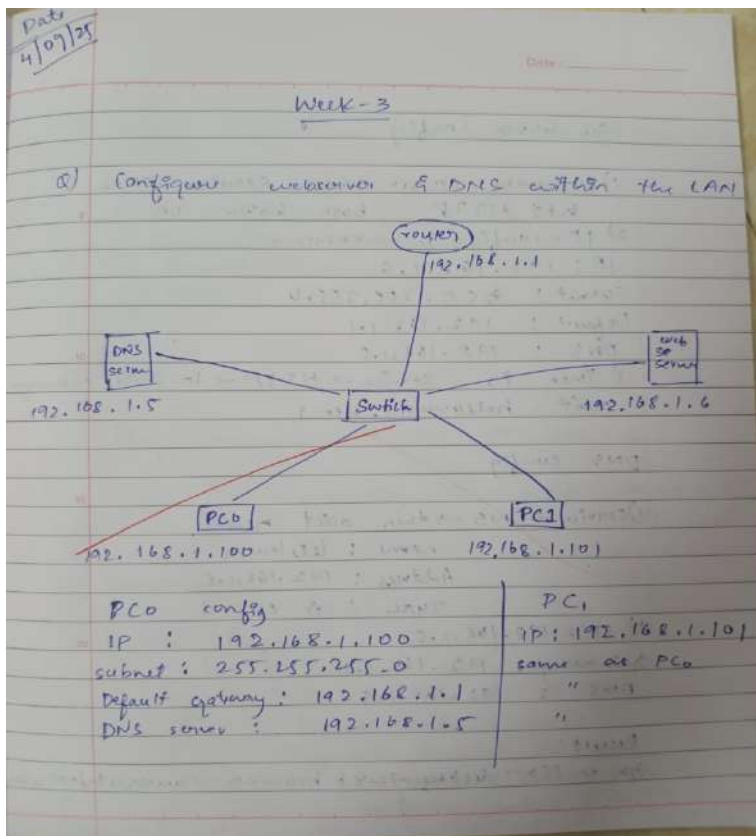 Date
4/09/25
Date:
Week-3
Q) Configure webserver & DNS within the LAN
router
192.168.1.1
DNS
Switch
192.168.1.5
192.168.1.6
PC0
PC1
192.168.1.100
192.168.1.101
PC0 config
IP : 192.168.1.100
subnet : 255.255.255.0
Default gateway : 192.168.1.1
DNS server : 192.168.1.5
PC1
IP : 192.168.1.101
same as PC0
"
"